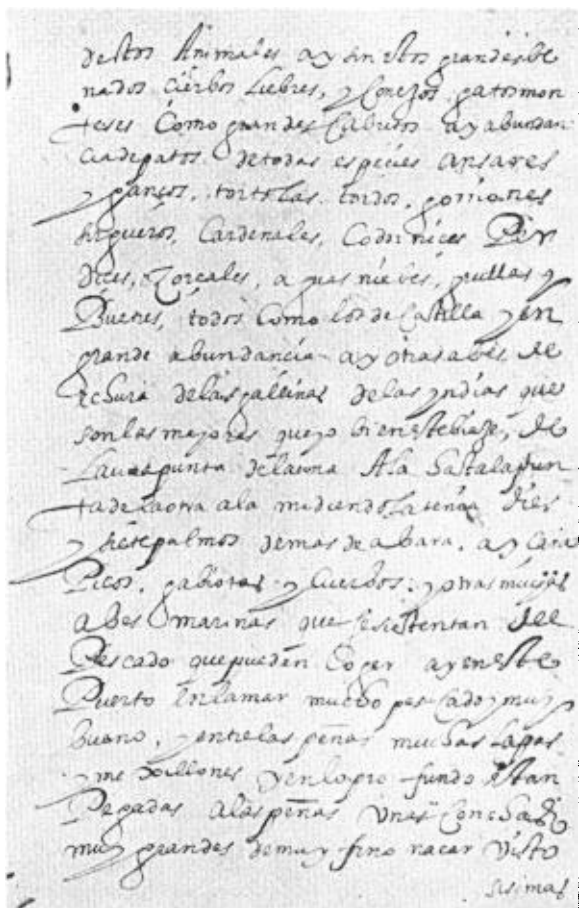 destos Animales ay sin estos grandes be
nados ciērbos Liebres, y Conejos gatos mon
teses Como grandes Cabritos ay abundan
cia de patos de todas especies ansares
y gansos, tortolas tordos, gorriones
sirgueros, Cardenales, Codornices Per
dices, Zorcales, aguas nieves, grullas y
Buetres, todos Como los de Castilla y en
grande abundancia ay otras abes de
echura de las gallinas de las yndias que
son las mayores que yo bi en este biaje, de
La una punta de la una Ala hasta la pun
ta de la otra ala midiendo la tenia dies
y siete palmos de mas de a bara, ay
Picos, gabiotas y Cuerbos, y otras muchas
abes marinas que se sustentan del
Pescado que pueden Coger ay en este
Puerto en la mar mucho pescado y muy
bueno, y entre las peñas muchas lapas
y mexillones y en lo profundo estan
Pegadas a las peñas Unas Conchas
muy grandes de muy fino nacar visto
sisimas